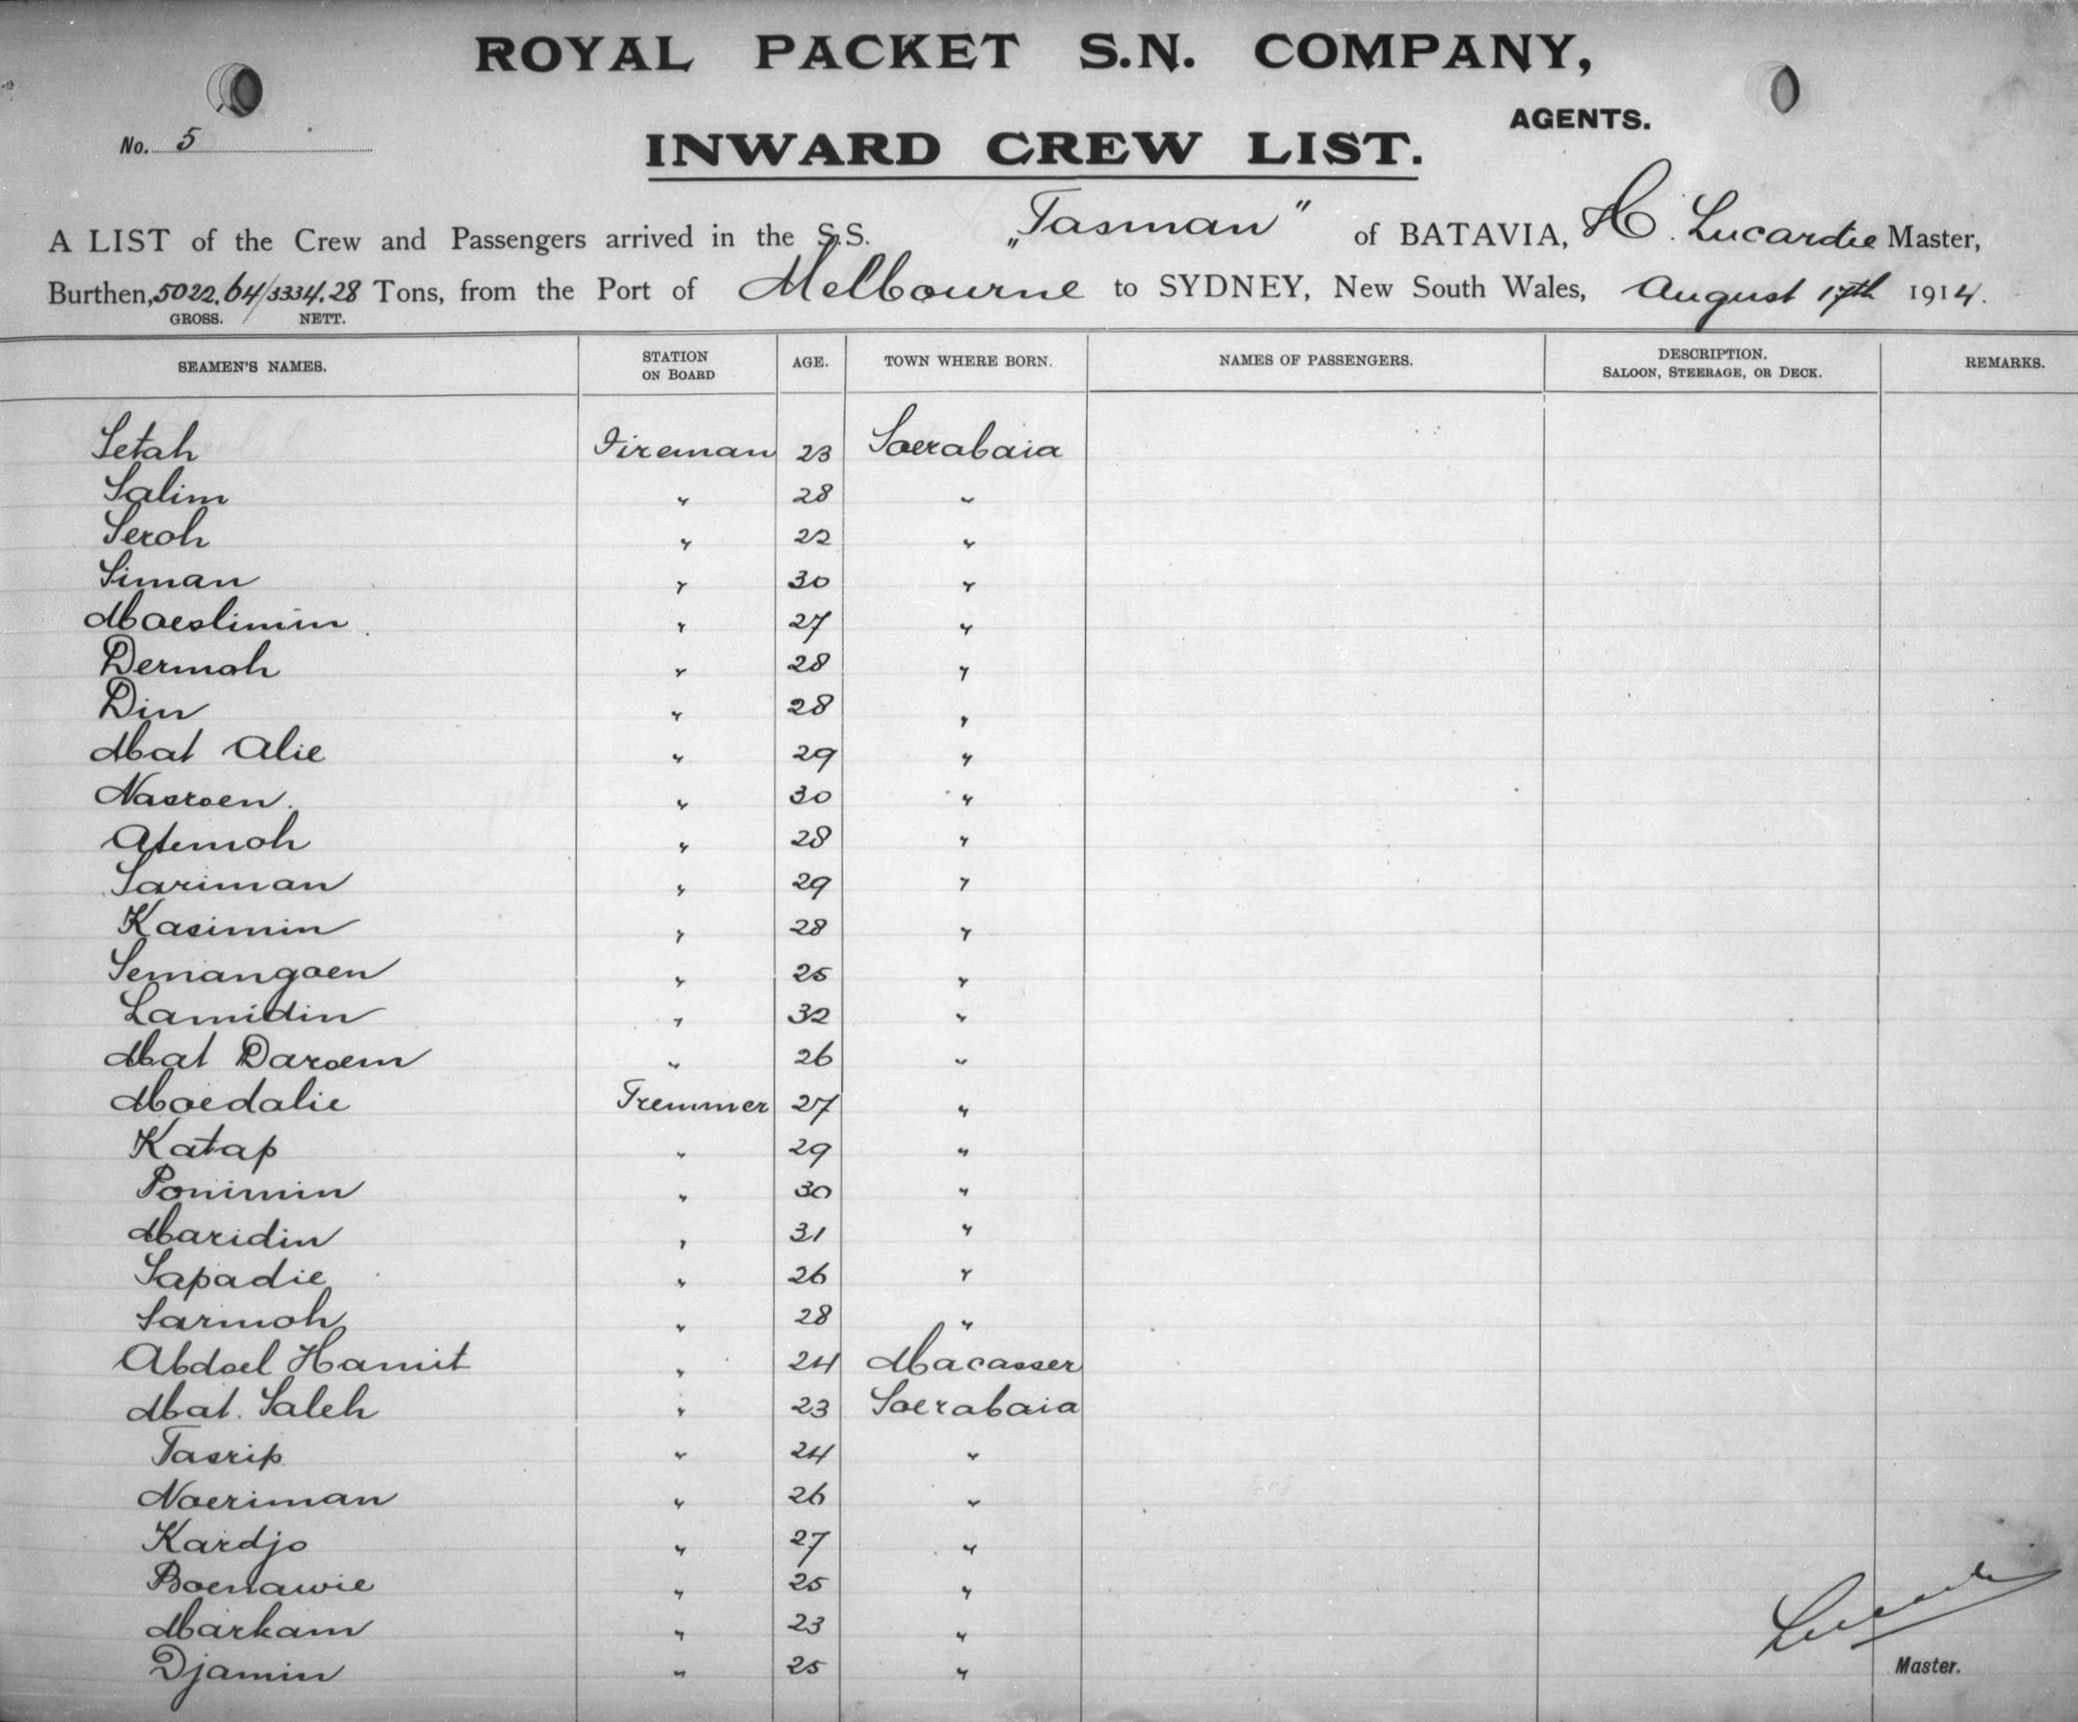 ROYAL PACKET S.N. COMPANY,
AGENTS.
No. 5
INWARD CREW LIST.
A LIST of the Crew and Passengers arrived in the S.S. „Tasman" of BATAVIA, H. Lucardie Master,
Burthen, 5022.64/3334.28 Tons, from the Port of Melbourne to SYDNEY, New South Wales, August 17th 1914.
GROSS. NETT.
SEAMEN'S NAMES. STATION ON BOARD AGE. TOWN WHERE BORN. NAMES OF PASSENGERS. DESCRIPTION. SALOON, STEERAGE, OR DECK. REMARKS.
Setah Fireman 23 Soerabaia
Salim " 28 "
Seroh " 22 "
Siman " 30 "
Moeslimin " 27 "
Dermoh " 28 "
Din " 28 "
Mat Alie " 29 "
Nasroen " 30 "
Atemoh " 28 "
Sariman " 29 "
Kasimin " 28 "
Semangoen " 25 "
Lamidin " 32 "
Mat Daroem " 26 "
Moedalie Tremmer 27 "
Katap " 29 "
Ponimin " 30 "
Maridin " 31 "
Sapadie " 26 "
Sarmoh " 28 "
Abdoel Hamit " 24 Macasser
Mat. Saleh " 23 Soerabaia
Tasrip " 24 "
Noeriman " 26 "
Kardjo " 27 "
Boenawie " 25 "
Markam " 23 "
Djamin " 25 "
Master.